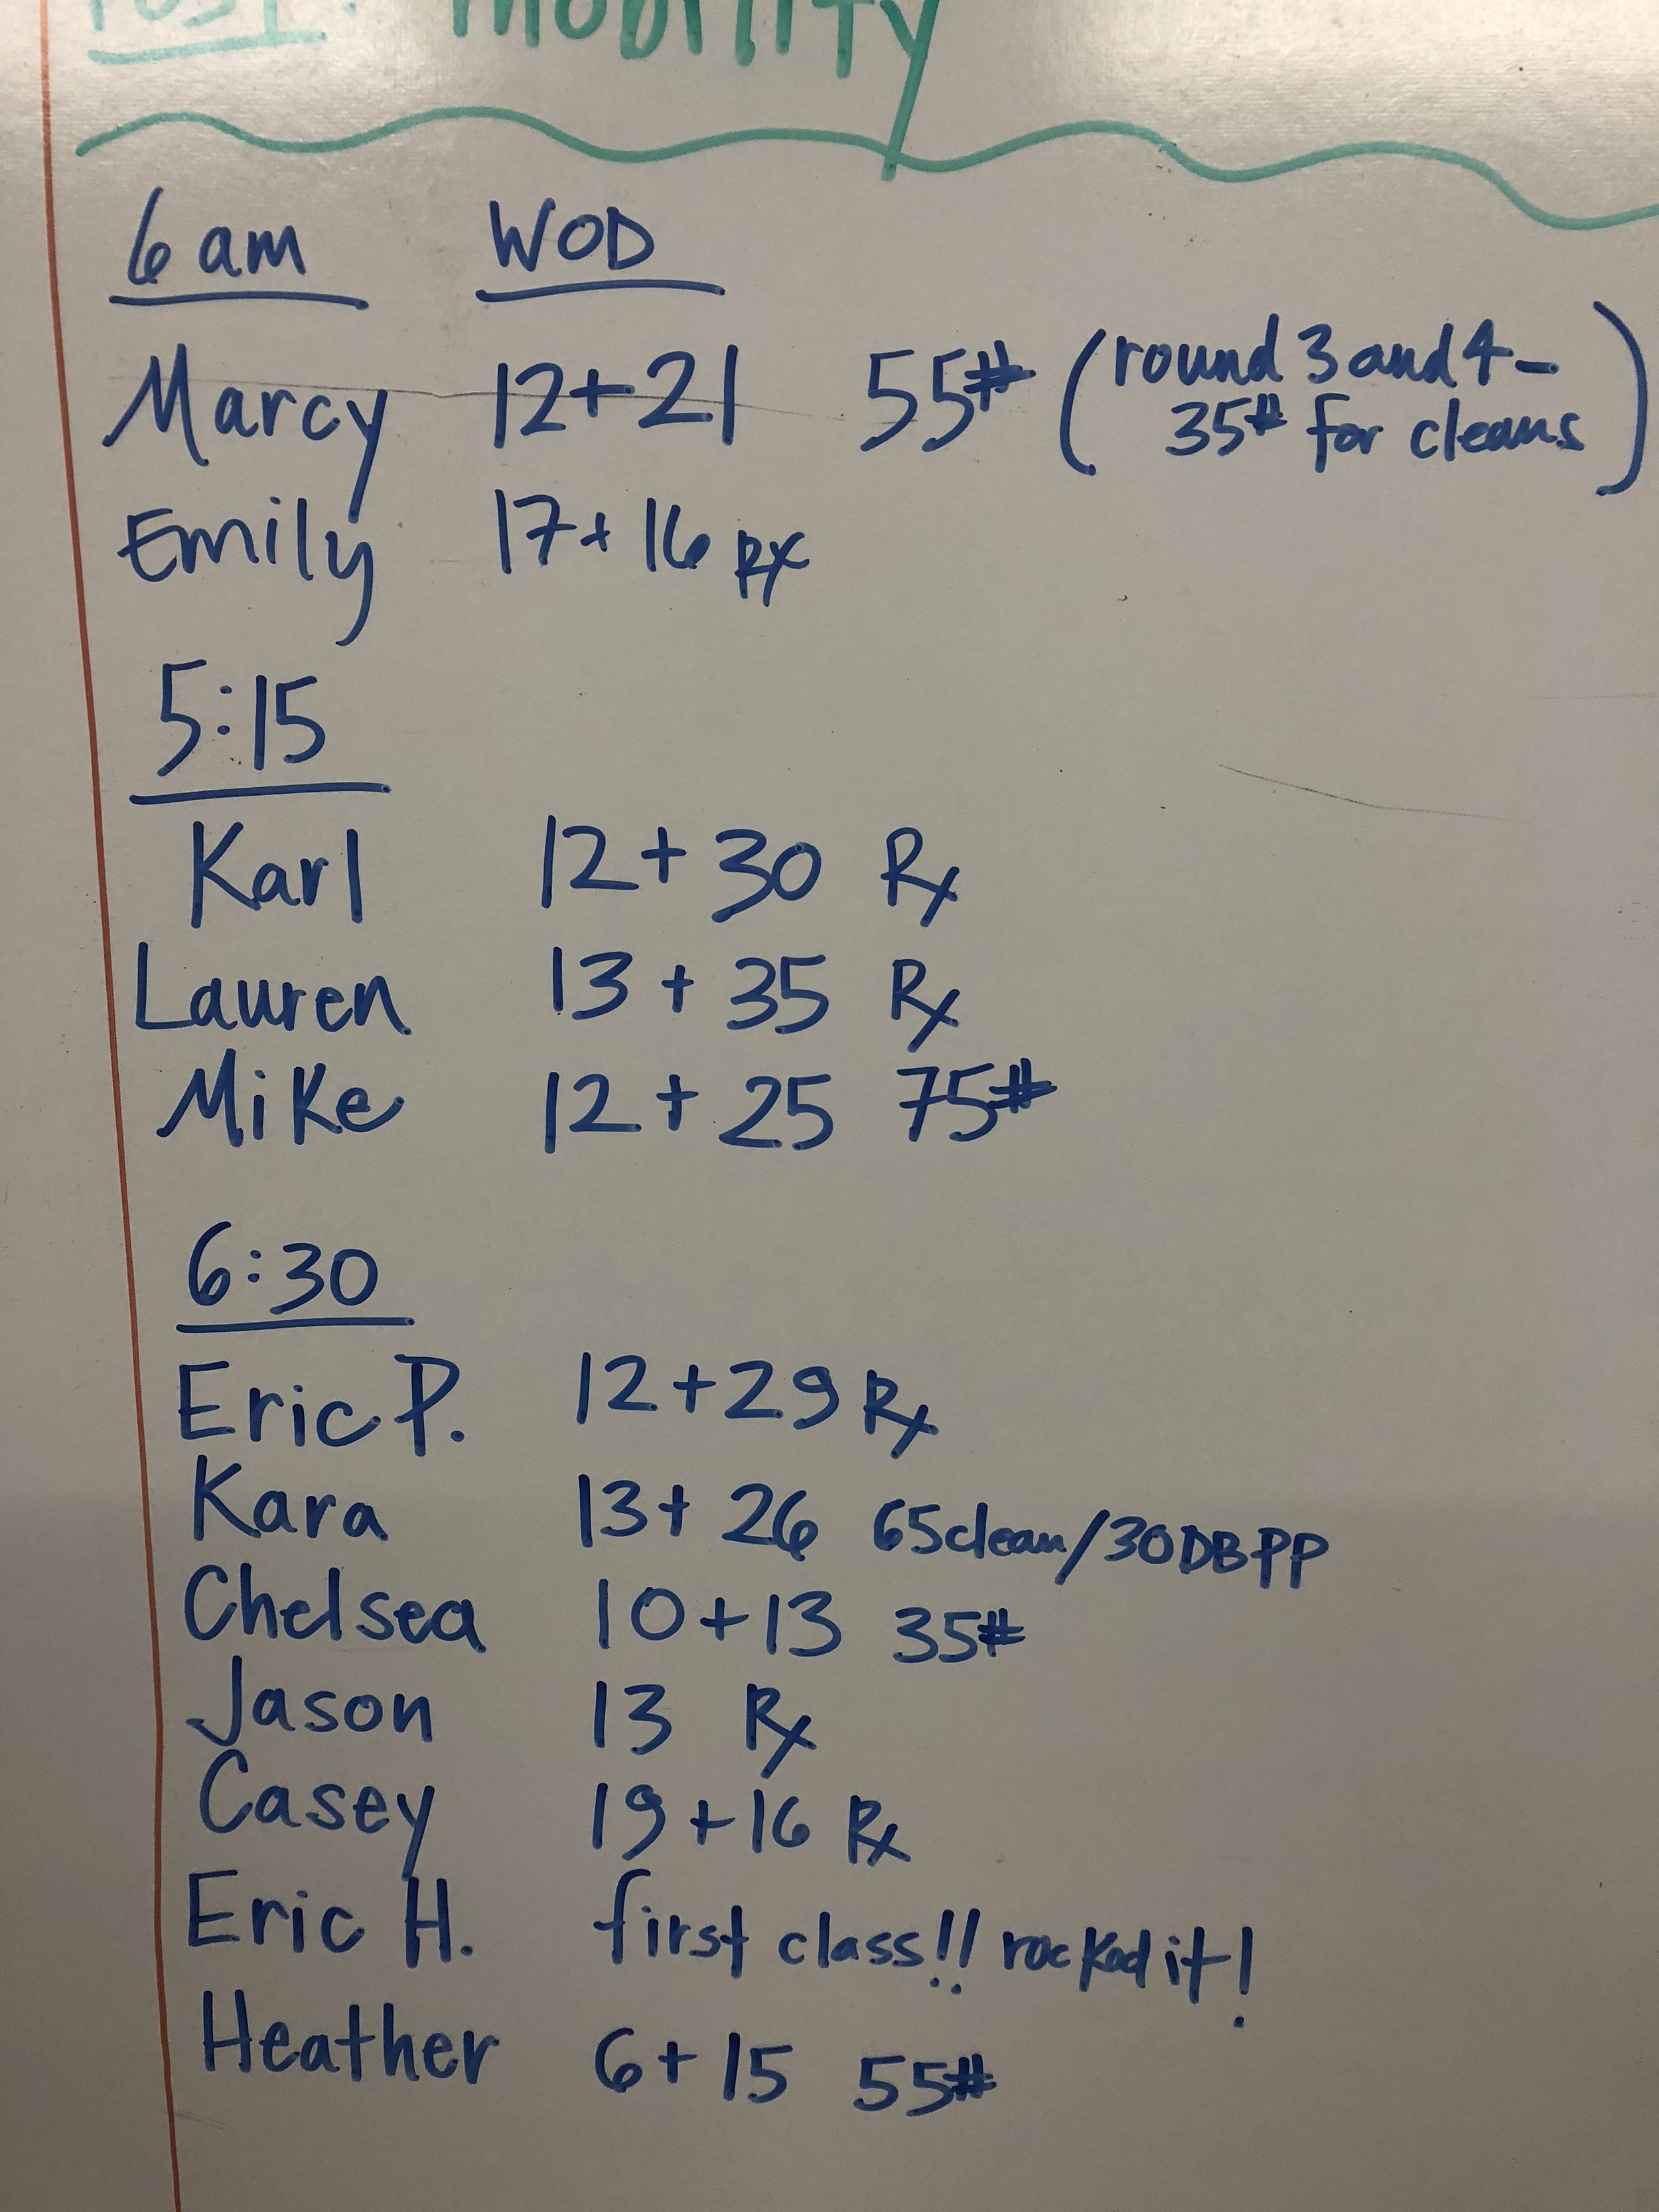 Post: Mobility
6am WOD
Marcy 12+21 55# (round 3 and 4-
35# for cleans)
Emily 17+16 Rx
5:15
Karl 12+30 Rx
Lauren 13+35 Rx
Mike 12+25 75#
6:30
Eric P. 12+29 Rx
Kara 13+26 65clean/30DBPP
Chelsea 10+13 35#
Jason 13 Rx
Casey 19+16 Rx
Eric H. first class!! rocked it!
Heather 6+15 55#